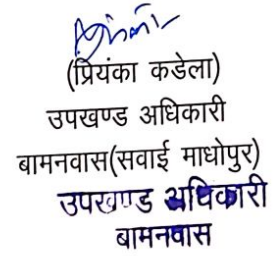 (प्रियंका कडेला)
उपखण्ड अधिकारी
बामनवास(सवाई माधोपुर)
उपखण्ड अधिकारी
बामनवास